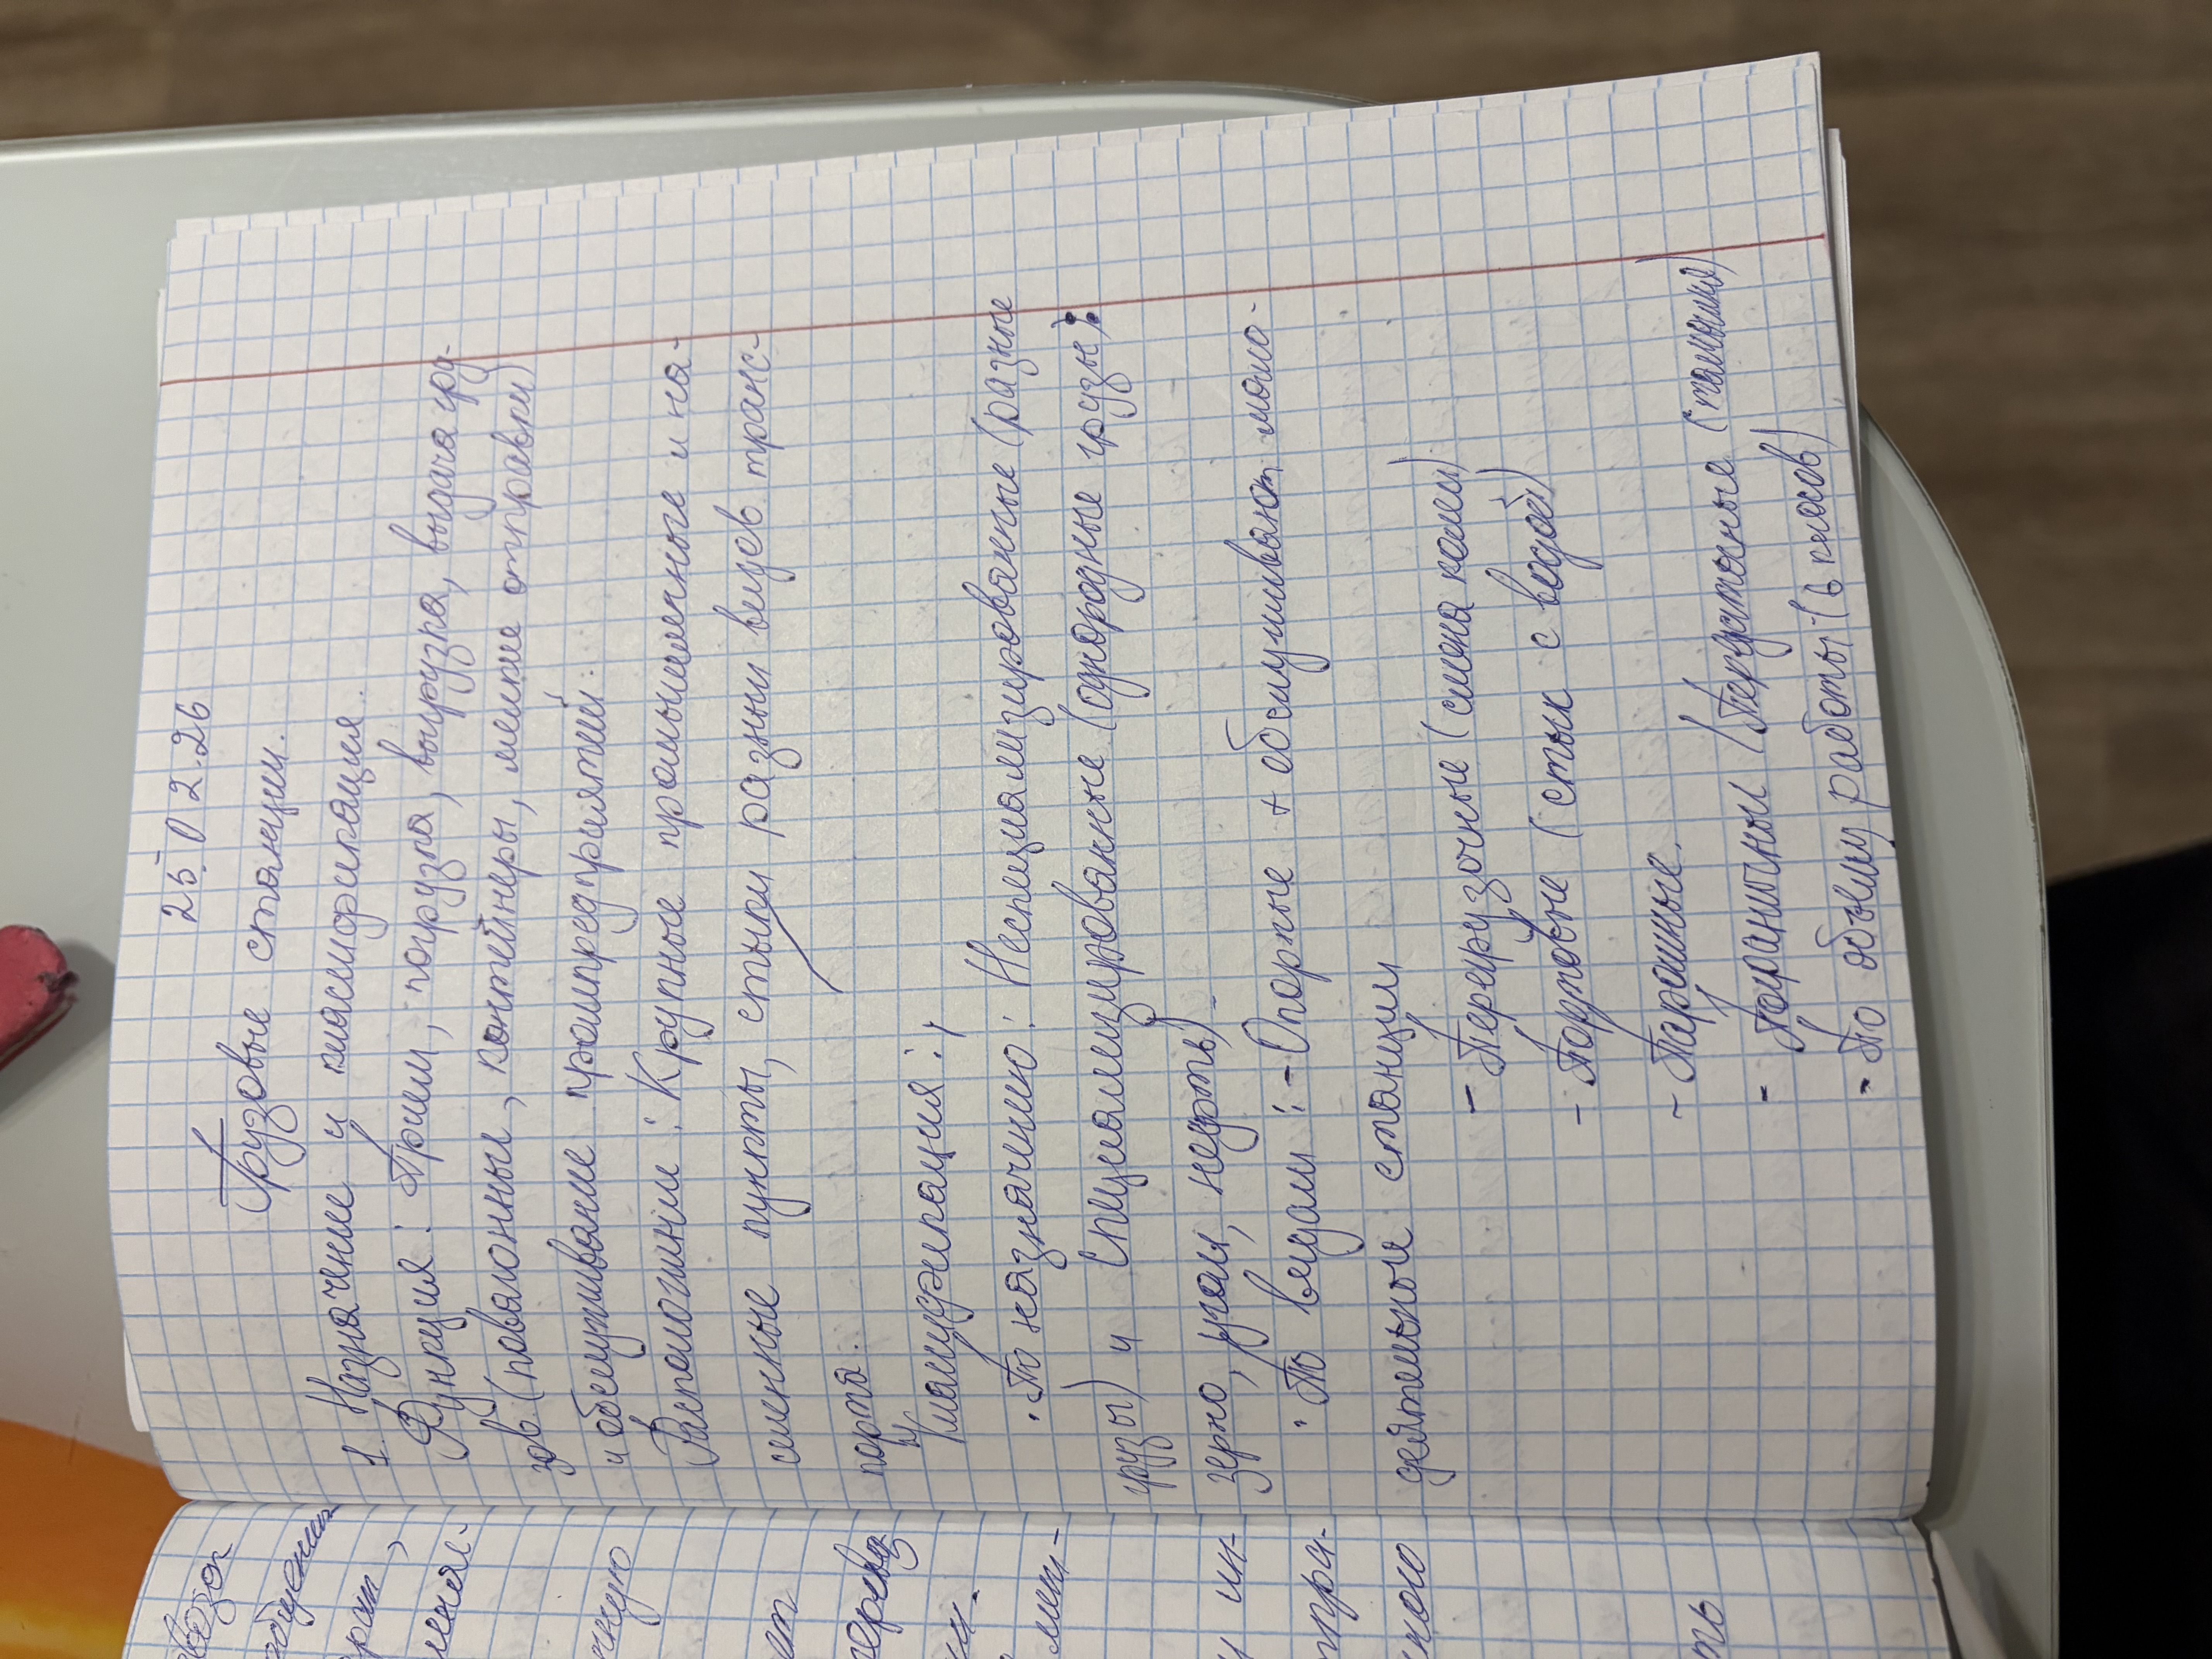 25.02.26
Грузовые станции.
1. Назначение и классификация.
Функция: Прием, погрузка, выгрузка, выдача гру-
зов (повагонные, контейнеры, мелкие отправки)
и обслуживание промпредприятий.
Распологинии: Крупные промышленные и на-
селенные пункты, стыки разных видов транс-
порта.
Классификация:
• По назначению: Неспециализированные (разные
грузы) и специализированные (однородные грузы):
зерно, уголь, нефть)
• По видам: - Опорные + обслуживают мало-
деятельные станции
- Перегрузочные (смена колеи)
- Портовые (стык с водой)
- Паромные.
- Пограничные (Перегрузочные (таможня)
- По объему работы (6 классов)
возок
чную
ет
перевоз
мин-
и ин-
тпра-
ного
ть